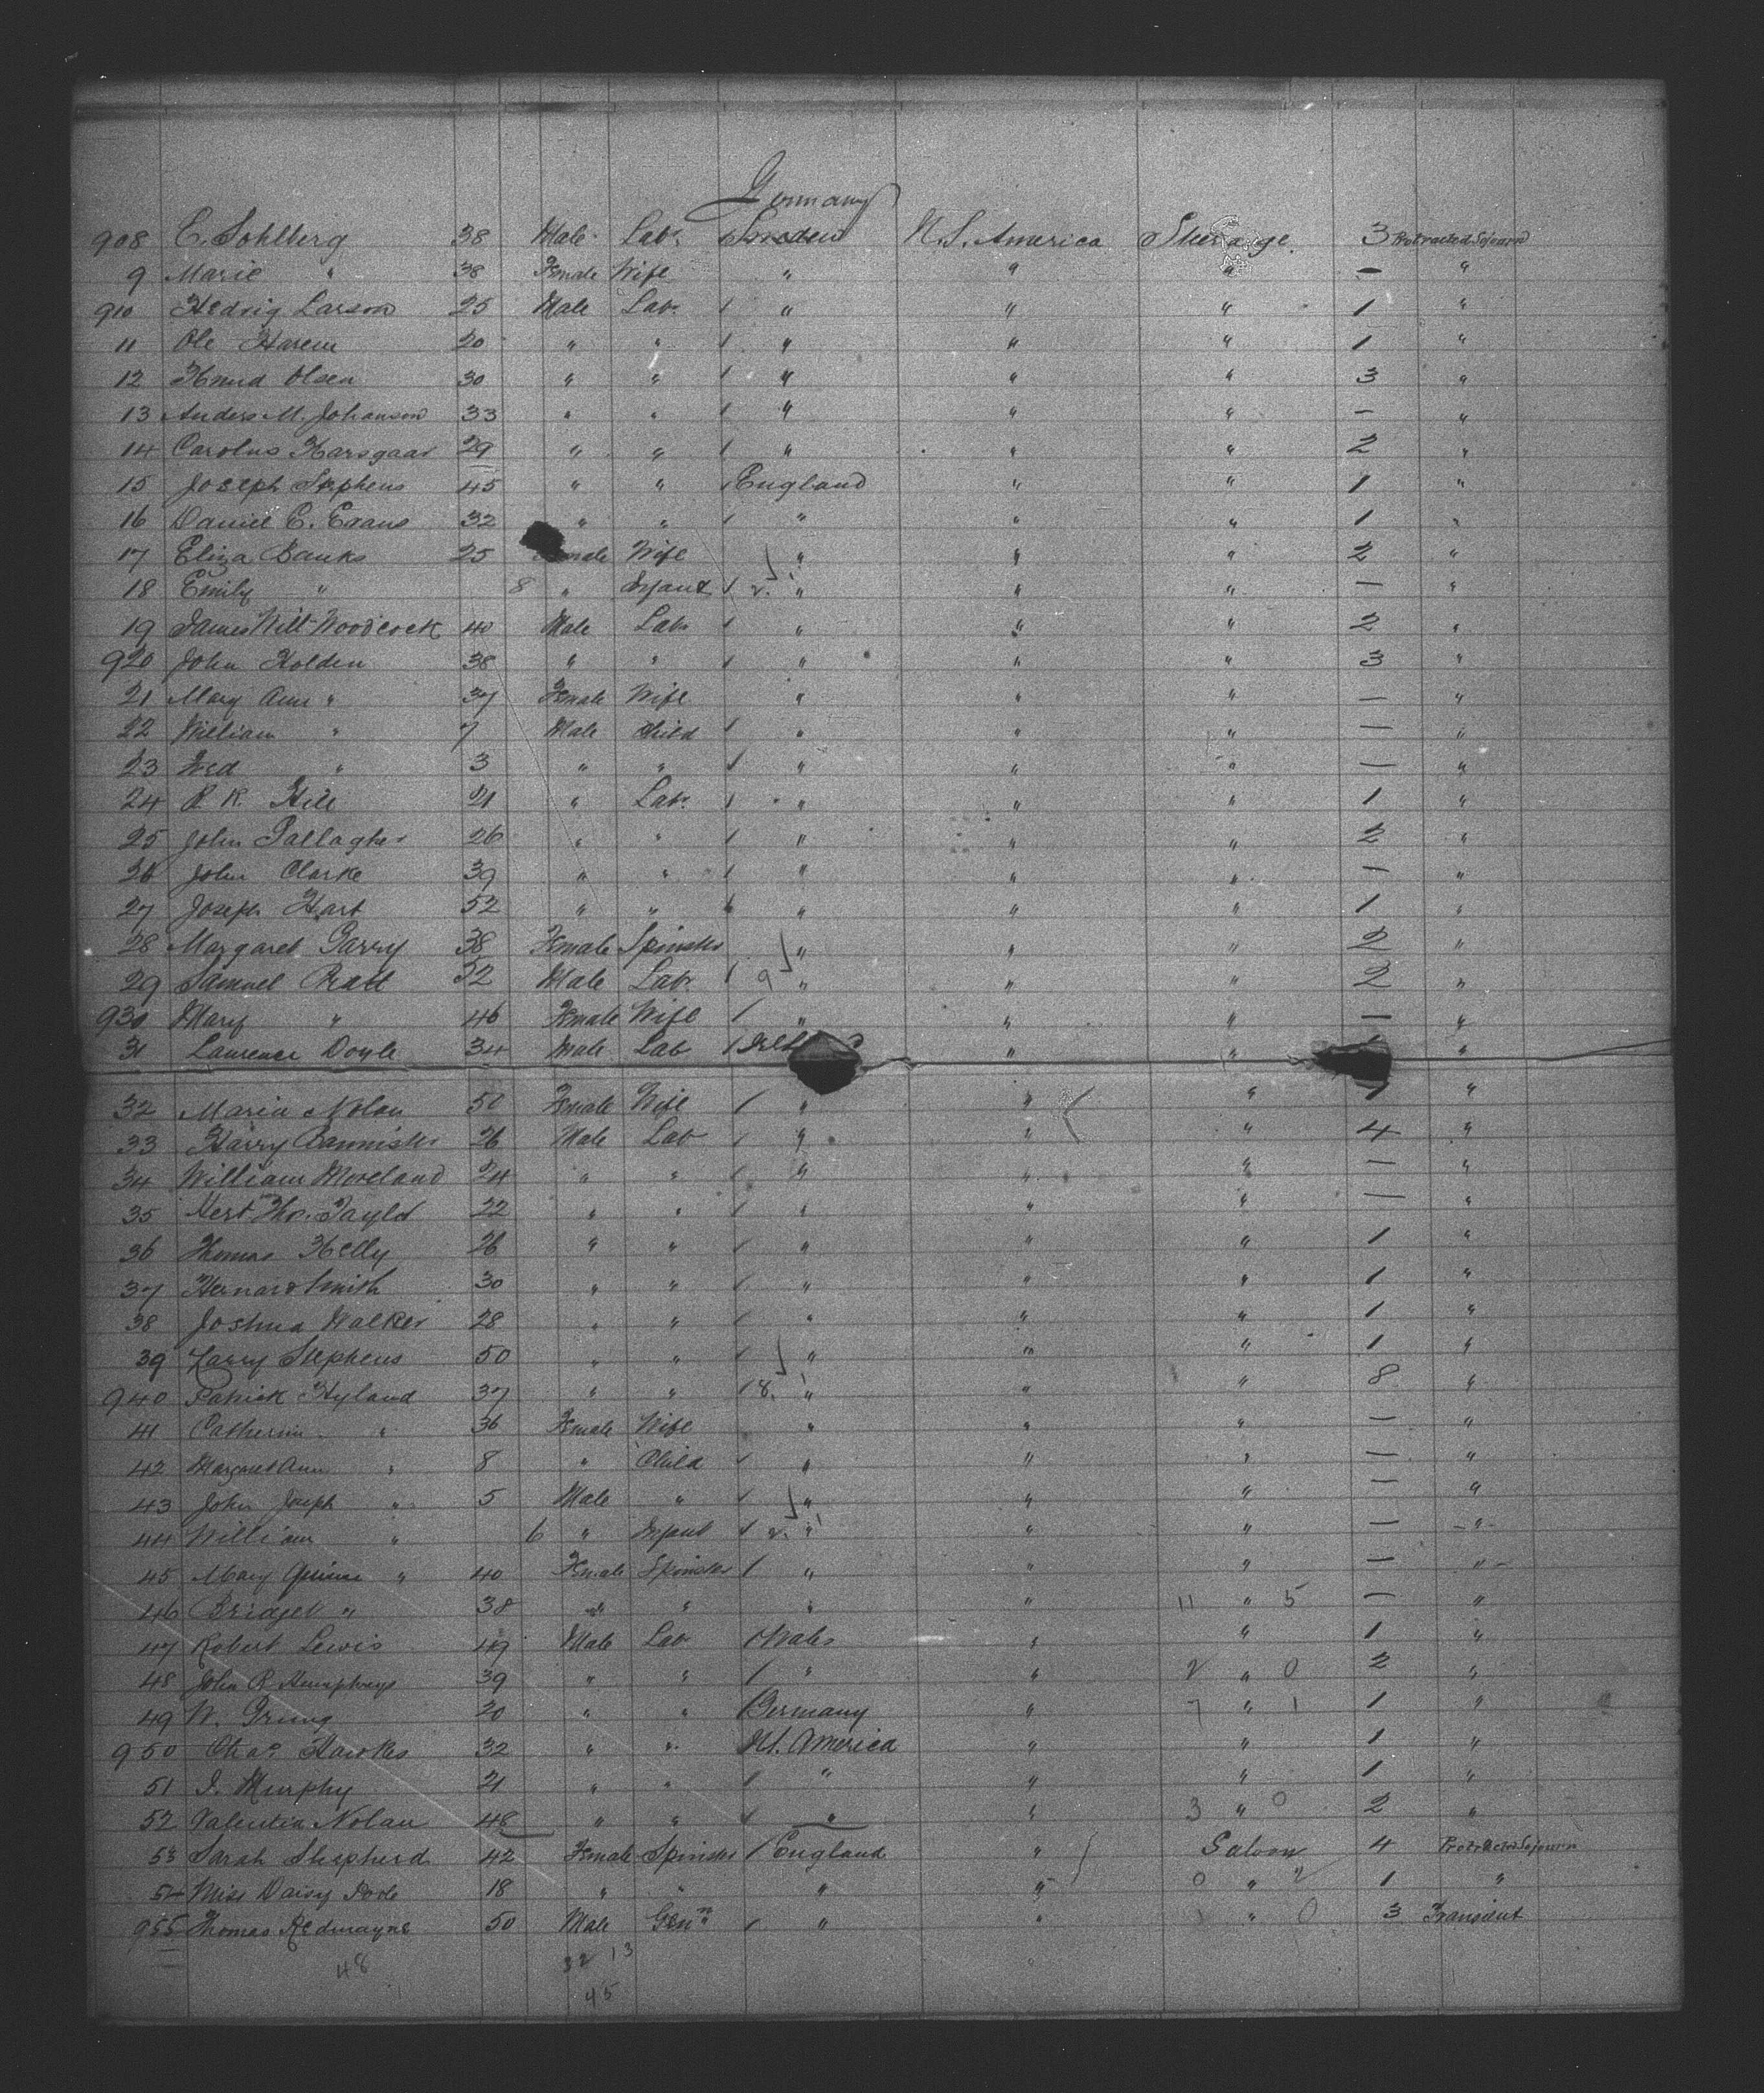 Germany
908 C. Sohlberg 38 Male Labr Sweden U.S. America Steerage 3 Protracted Sojourn
9 Marie " 38 Female Wife " " " — "
910 Hedvig Larson 25 Male Labr / " " " 1 "
11 Ole 20 " " / " " " 1 "
12 Knud Olsen 30 " " / " " " 3 "
13 Anders M. Johanson 33 " " / " " " — "
14 Carolus 29 " " / " " " 2 "
15 Joseph Stephens 45 " " / England " " 1 "
16 Daniel E. Evans 32 " " / " " " 1 "
17 Eliza Banks 25 Female Wife " " " 2 "
18 Emily " 8 " Infant / 2. " " " — "
19 James Woodcock 40 Male Labr / " " " 2 "
920 John Holden 38 " " / " " " 3 "
21 Mary Ann " 37 Female Wife " " " — "
22 William " 7 Male Child / " " " — "
23 Fred " 3 " " / " " " — "
24 R. R. Hill 21 " Labr / " " " 1 "
25 John Gallagher 26 " " / " " " 2 "
26 John Clarke 39 " " / " " " — "
27 Joseph Hart 52 " " " " " 1 "
28 Margaret Garry 38 Female Spinster " " " 2 "
29 Samuel Pratt 52 Male Labr / 9 " " " 2 "
930 Mary " 46 Female Wife / " " " — "
31 Laurence Doyle 34 Male Lab / " " "
32 Maria Nolan 50 Female Wife / " " " 1 "
33 Harry Bannister 26 Male Lab / " " " 4 "
34 William Moreland 24 " " / " " " — "
35 22 " " / " " " — "
36 Thomas Kelly 26 " " / " " " 1 "
37 Smith 30 " " / " " " 1 "
38 Joshua Walker 28 " " / " " " 1 "
39 Stephens 50 " " / " " " 1 "
940 Patrick Hyland 37 " " / 8. " " " 8 "
41 Catherine " 36 Female Wife " " " — "
42 Margaret Ann " 8 " Child / " " " — "
43 John Joseph " 5 Male " / " " " — "
44 William " 6 " Infant / 2. " " " — "
45 Mary Quinn " 40 Female Spinster / " " " — "
46 Bridget " 38 " " " " 11 " 5 — "
47 Robert Lewis 49 Male Lab / Wales " " 1 "
48 John R Humphreys 39 " " / " " 2 " 0 2 "
49 W. 20 " " / Germany " 7 " 1 1 "
950 Chas Hawkes 32 " " U. America " " 1 "
51 J. Murphy 21 " " / " " " 1 "
52 Valentia Nolan 48 " " / " " 3 " 0 2 "
53 Sarah Shepherd 42 Female Spinster / England " Saloon 4 Protracted Sojourn
54 Miss Daisy 18 " " " " 0 " 2 1 "
955 Thomas Redmayne 50 Male Genn / " " " 0 3 Transient
48 32 13
45